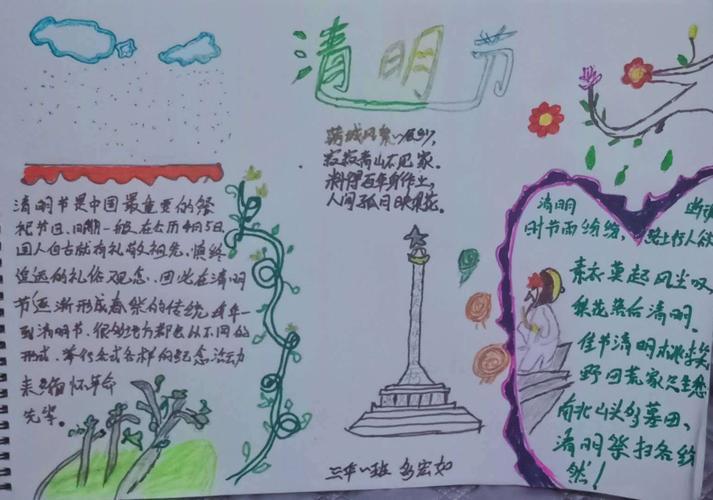 清明节
清明节是中国最重要的祭
祀节日,日期一般在公历4月5日
国人自古就有礼敬祖先,慎终
追远的礼俗观念.因此在清明
节逐渐形成春祭的传统.每年一
到清明节,很多地方都会从不同的
形式.举行各式各样的纪念活动
来缅怀革命
先辈。
寂寂青山不见家.
料得百年身作土,
人间孤月映梨花。
三年八班
清明
时节雨纷纷,
路上行人欲
素衣莫起风尘叹,
梨花落后清明.
佳节清明桃李笑
野田荒冢只生愁
南北山头多墓田,
清明祭扫各纷
然!